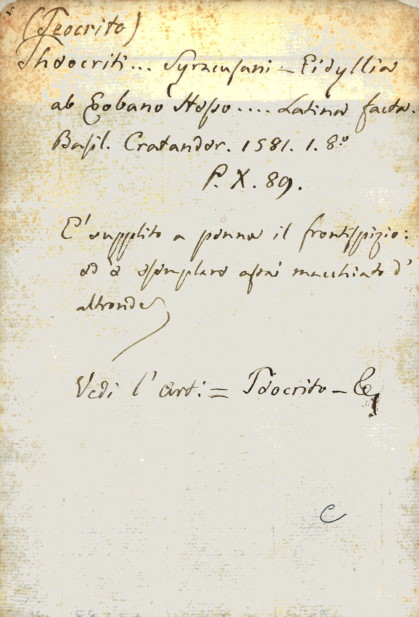 (Teocrito)
Theocriti... Syracusani = Eidyllia
ab Eobano Hesso.... Latina facta.
Basil. Cratander. 1581. 1. 8.º
P. X. 89.
E' supplito a penna il frontispizio:
ed è esemplare assai macchiato d'
altronde
Vedi l'arti: = Teocrito =
c